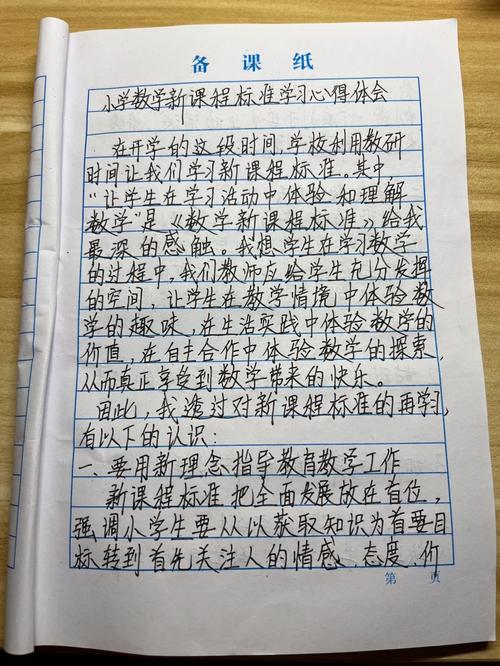 备课纸
小学数学新课程标准学习心得体会
在开学的这段时间,学校利用教研
时间让我们学习新课程标准。其中,
“让学生在学习活动中体验和理解
数学”是《数学新课程标准》给我
最深的感触。我想学生在学习数学
的过程中,我们教师应给学生充分发挥
的空间,让学生在教学情境中体验数
学的趣味,在生活实践中体验数学的
价值,在自主合作中体验数学的探索,
从而真正享受到数学带来的快乐。
因此,我透过对新课程标准的再学习,
有以下的认识:
一、要用新理念指导教育教学工作
新课程标准把全面发展放在首位,
强调小学生要从以获取知识为首要目
标转到首先关注人的情感、态度、价
第 页